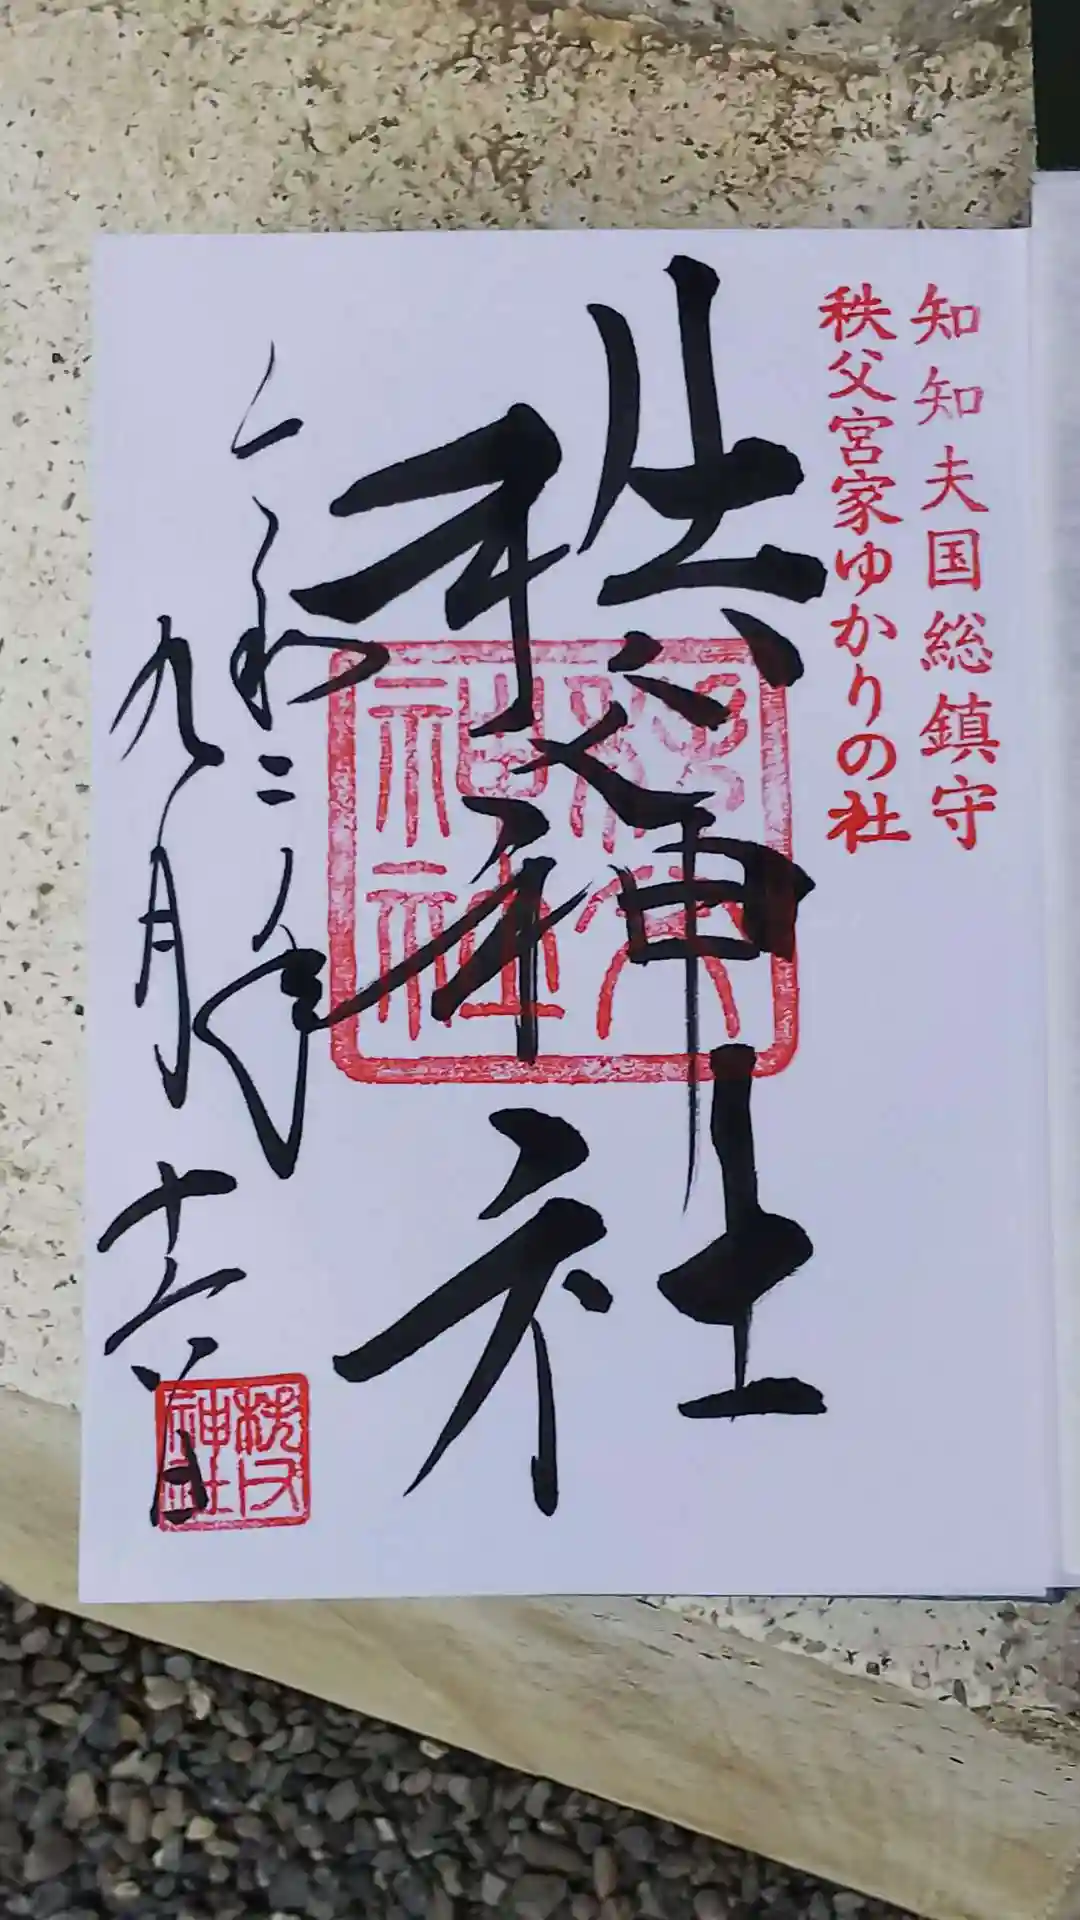 知知夫国総鎮守
秩父宮家ゆかりの社
秩父神社
令和二年
九月十六日
秩父
神社
秩父
神社